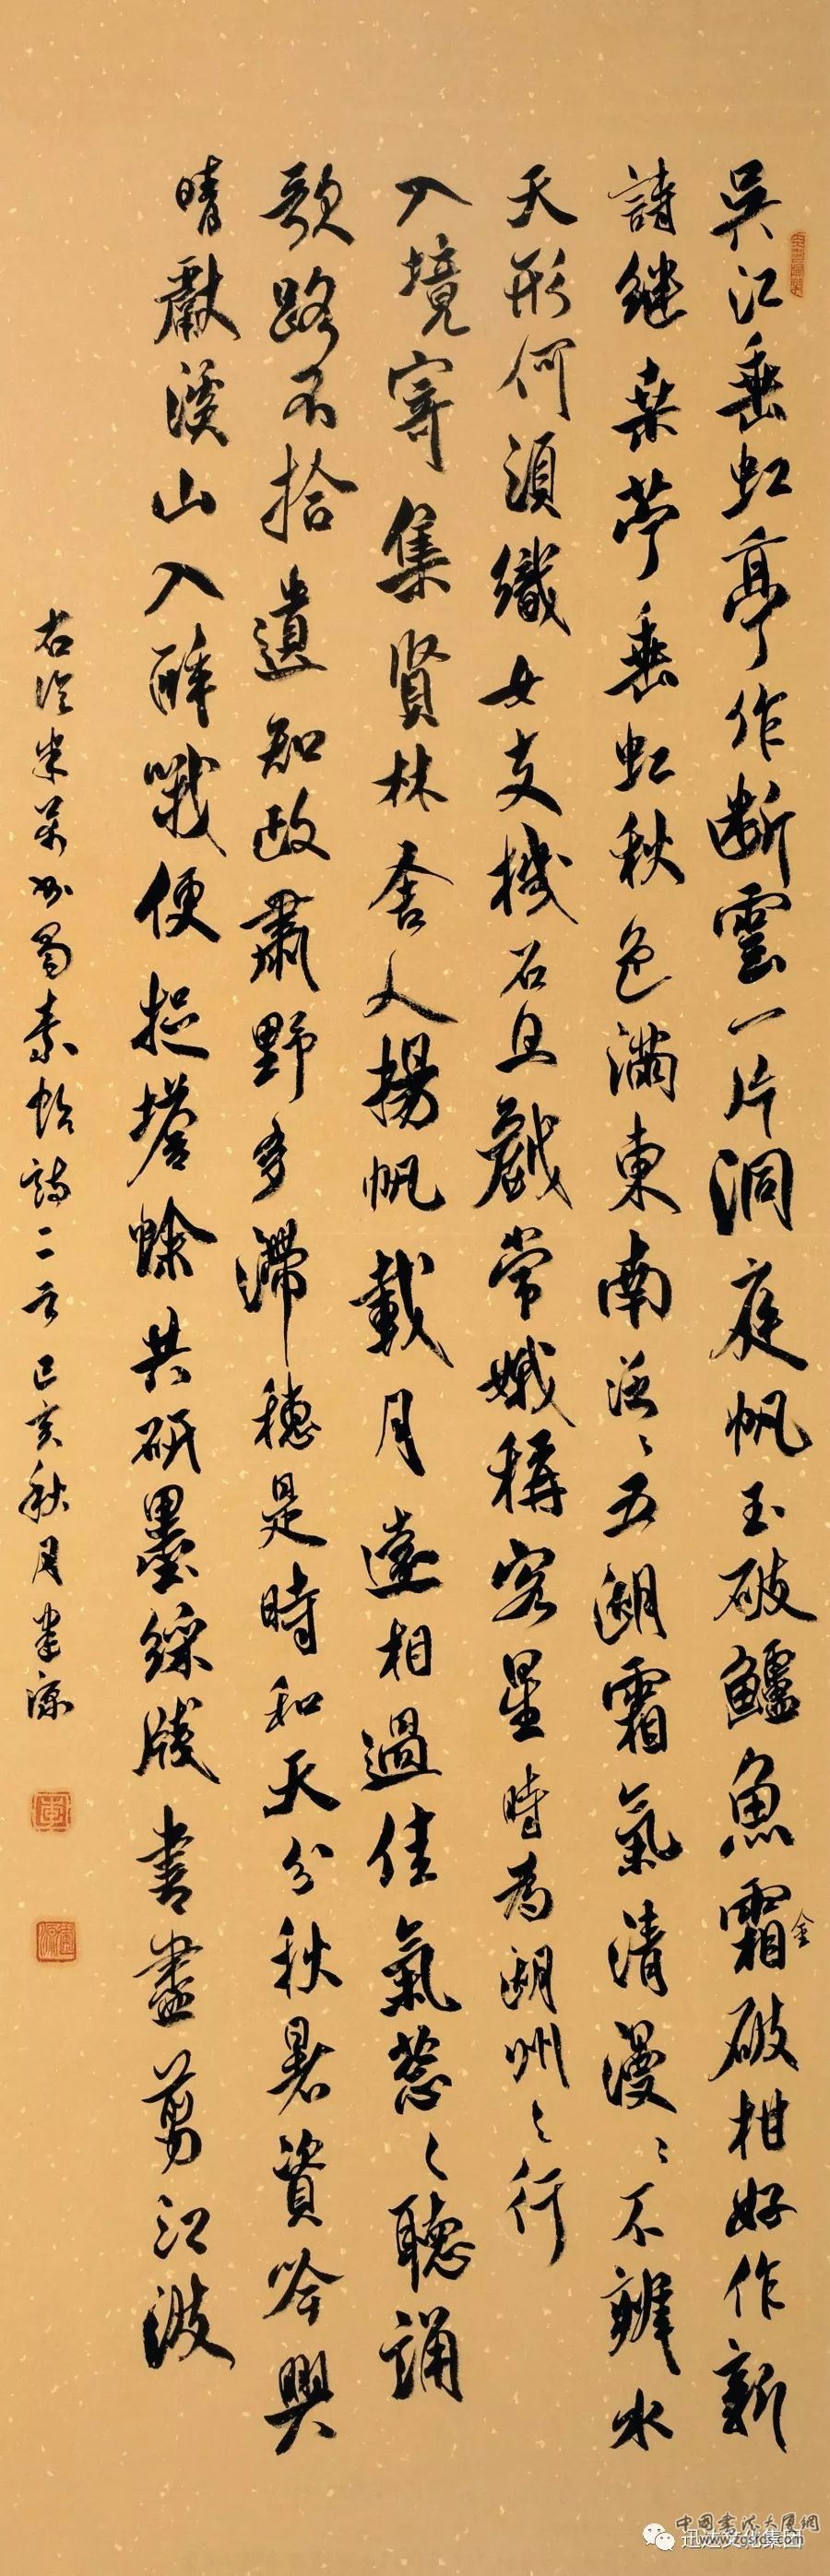 吳江垂虹亭作斷雲一片洞庭帆玉破鱸魚霜破柑好作新
金
詩継桒苧垂虹秋色滿東南泛〻五湖霜氣清漫〻不辨水
天形何須織女支機石且戲常娥稱客星時為湖州〻行
入境寄集賢林舍人揚帆載月遠相過佳氣葱〻聽誦
歌路不拾遺知政肅野多滯穗是時和天分秋暑資吟興
晴獻溪山入醉哦便捉蟾蜍共研墨綵牋書盡剪江波
右臨米芾蜀素帖詩二首己亥秋月
中國書法大廈網
www.zgsfds.com
迅达文化集团